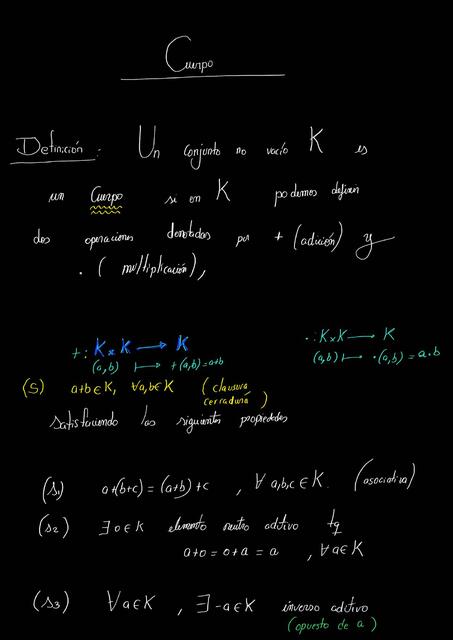 Cuerpo
Definición: Un conjunto no vacío K es
un Cuerpo si en K podemos definir
dos operaciones denotadas por + (adición) y
· (multiplicación),
+: K x K → K
·: K x K → K
(a,b) ↦ +(a,b) = a+b
(a,b) ↦ ·(a,b) = a·b
(S) a+b ∈ K, ∀a,b ∈ K (clausura
cerradura)
satisfaciendo las siguientes propiedades
(S1) a+(b+c) = (a+b)+c , ∀ a,b,c ∈ K. (asociativa)
(S2) ∃ 0 ∈ K elemento neutro aditivo tq
a+0 = 0+a = a , ∀a ∈ K
(S3) ∀a ∈ K , ∃ -a ∈ K inverso aditivo
(opuesto de a)